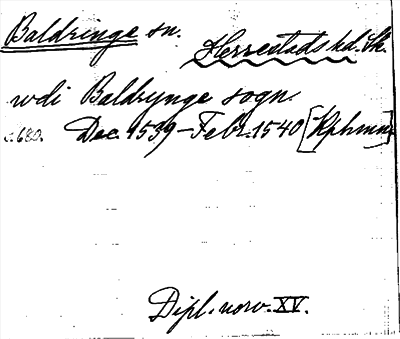 Baldringe sn.
Herrestads hd. Sk.
wdi Baldrynge sogn.
c. 680. Dec. 1539 - Febr. 1540 [Kphmn]
Dipl. norv. XV.